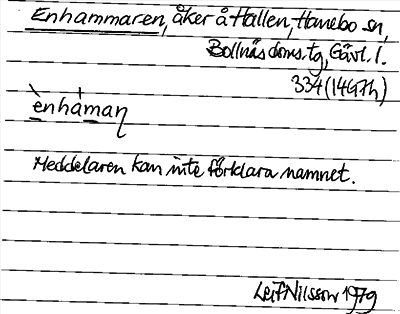 Enhammaren, åker å Hallen, Hanebo sn,
Bollnäs doms.tg, Gävl. l.
334 (14G7h)
ènhámaṇ
Meddelaren kan inte förklara namnet.
Leif Nilsson 1979